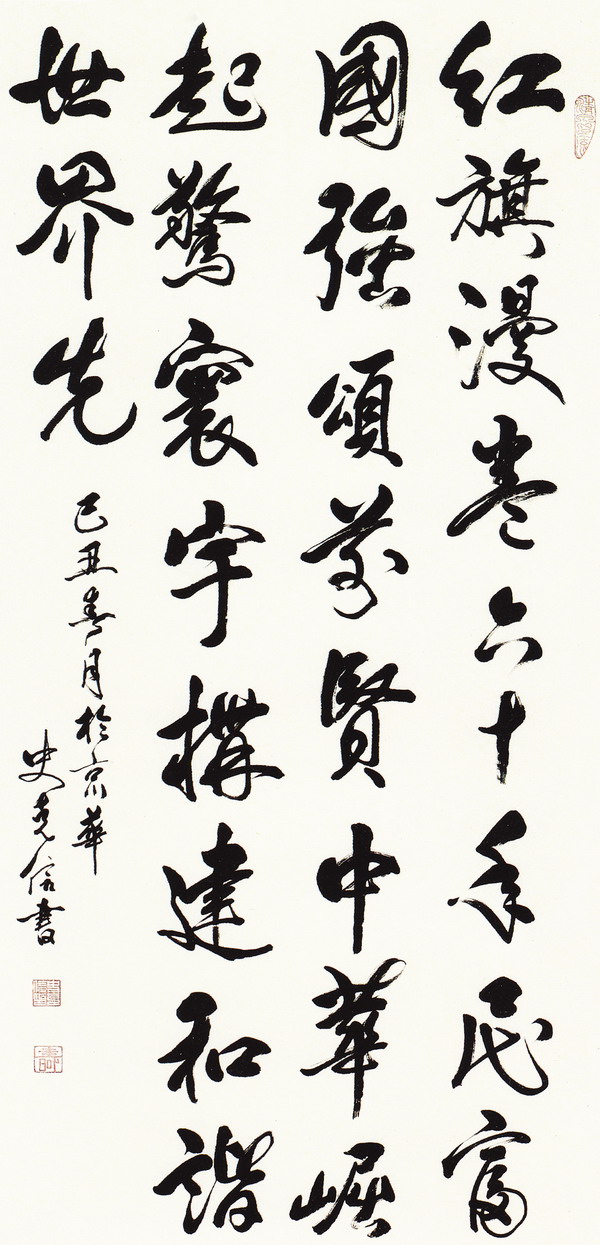 红旗漫卷六十年民富
國強頌前賢中華崛
起驚寰宇構建和諧
世界先
己丑春月於京華
史克信書